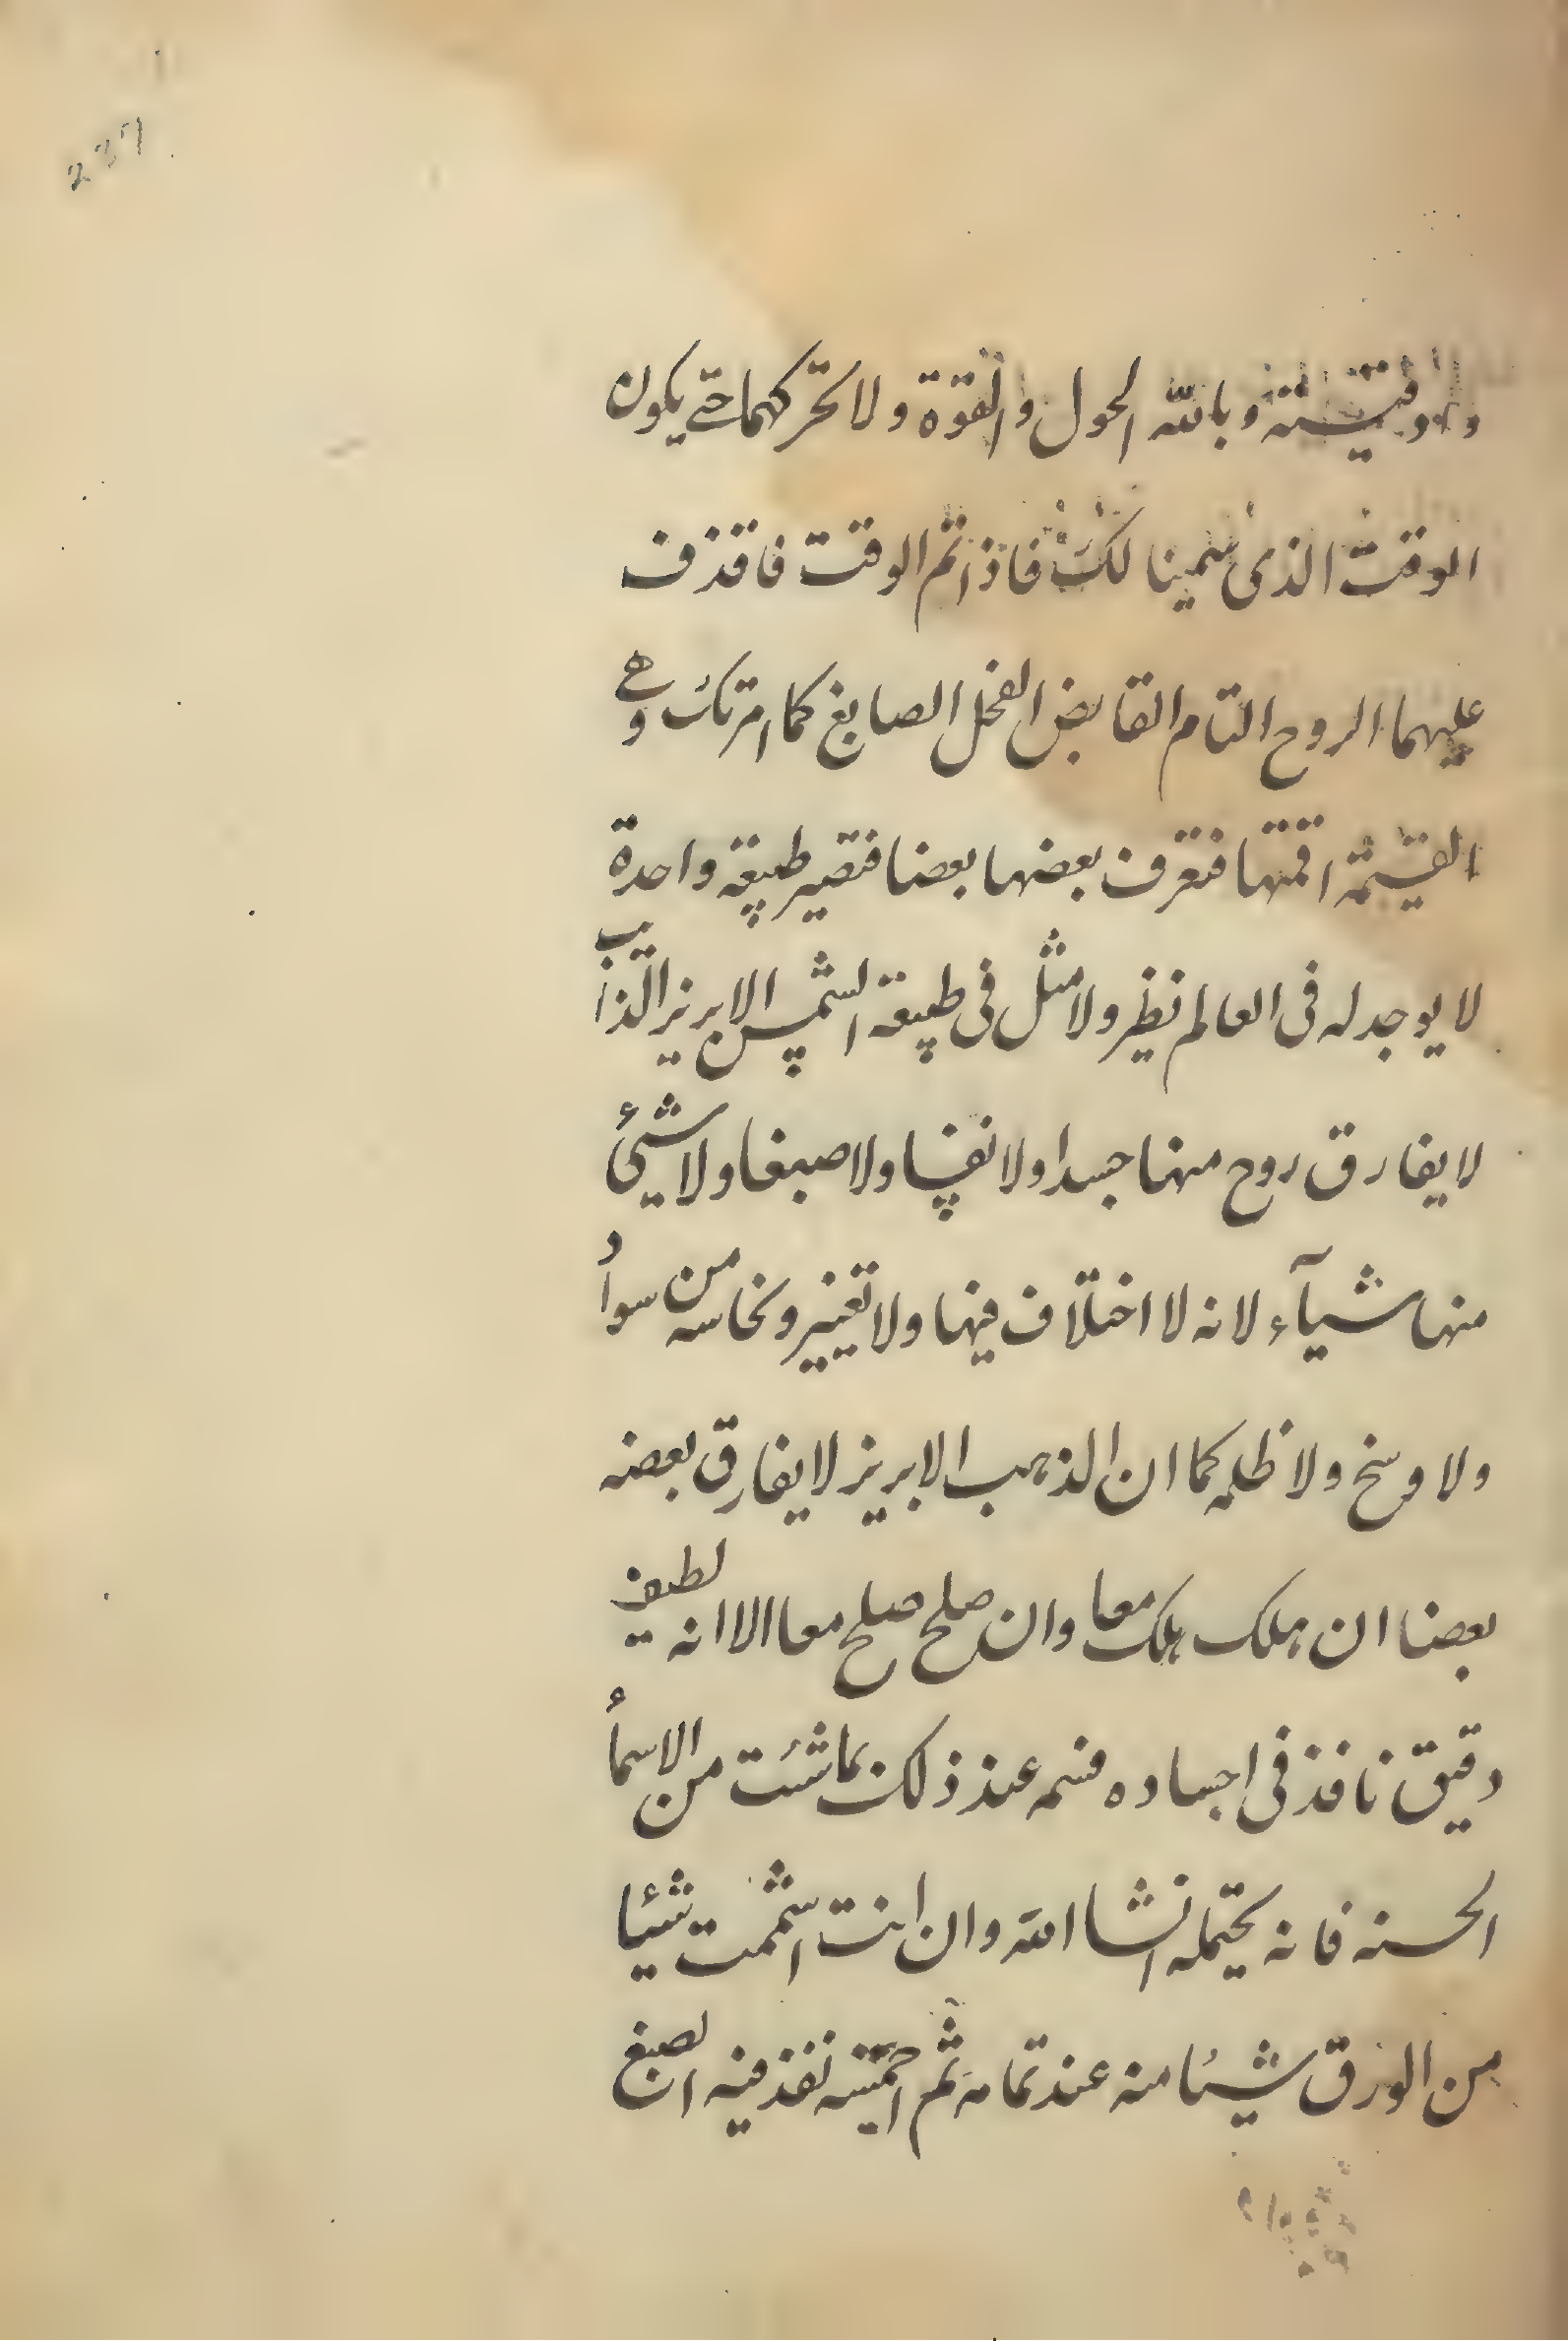 237
وبالله الحول والقوة ولا تحركهما حتى يكون
الوقت الذى سمينا لك فاذا تم الوقت فاقذف
عليهما الروح التام القابض الفحل الصابغ كما امرتك وهى
القسمة اقمتها فتغرف بعضها بعضا فتصير طبيعة واحدة
لا يوجد له فى العالم نظير ولا مثل فى طبيعة الشمس الابريز الذائب
لا يفارق روح منها جسدا ولا نفسا ولا صبغا ولا شئ
منها شيآء لانه لا اختلاف فيها ولا تغيير ونحاسه من سواد
ولا وسخ ولا ظلمه كما ان الذهب الابريز لا يفارق بعضه
بعضا ان هلك هلك معا وان صلح صلح معا الا انه لطيف
دقيق نافذ فى اجساده فسمه عند ذلك بما شئت من الاسمأ
الحسنه فانه يحتمله انشا الله وان انت اشممت شيئا
من الورق شيئا منه عند تمامه ثم احميته نفذ فيه الصبغ